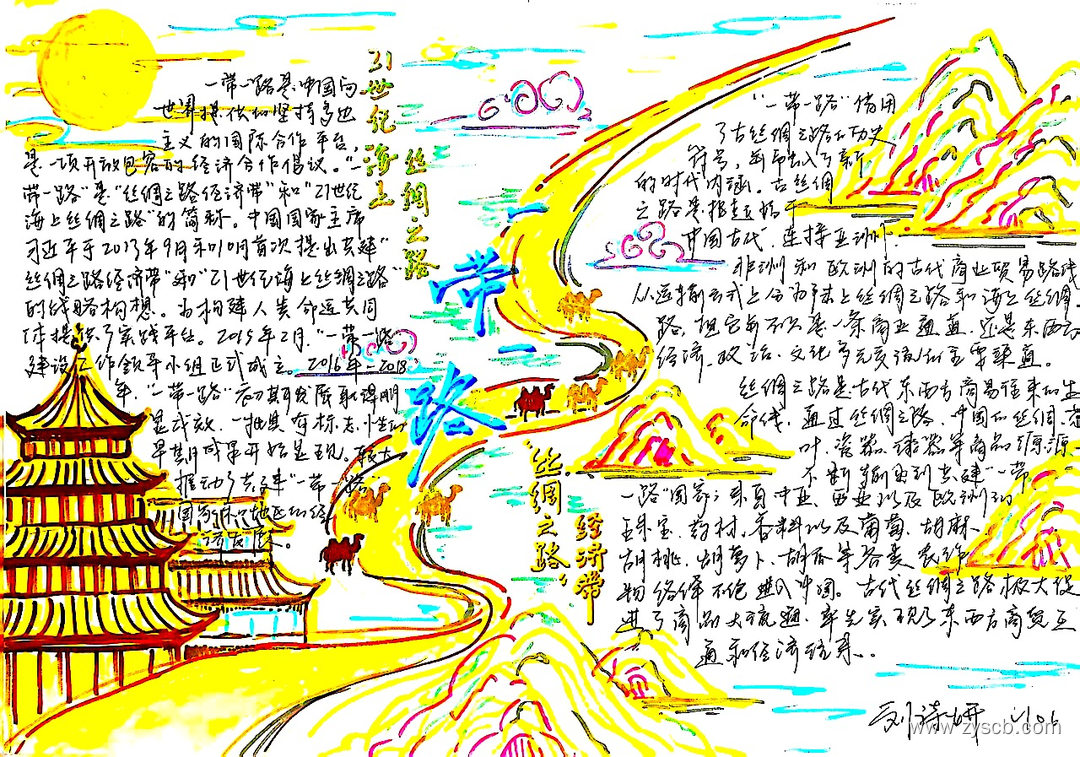 21世纪海上
丝绸之路
一带一路
"丝绸之路"
经济带
一带一路是中国向
世界提供的坚持多边
主义的国际合作平台，
是一项开放包容的经济合作倡议。"一
带一路"是"丝绸之路经济带"和"21世纪
海上丝绸之路"的简称。中国国家主席
习近平于2013年9月和10月首次提出共建"
丝绸之路经济带"和"21世纪海上丝绸之路"
的战略构想。为构建人类命运共同
体提供了实践平台。2015年2月，"一带一路
建设工作领导小组正式成立。2016年-2018
年，"一带一路"初期发展取得明
显成效，一批具有标志性的
早期成果开始显现。较大
推动了共建"一带一路"
国家和地区的经
济发展。
"一带一路"借用
了古丝绸之路的历史
符号，并带出入了新
的时代内涵。古丝绸
之路是指起始于
中国古代，连接亚洲
非洲和欧洲的古代商业贸易路线
从运输方式上分为陆上丝绸之路和海上丝绸
路，但它却不仅是一条商业通道，还是东西方
经济、政治、文化多元交流的主要渠道。
丝绸之路是古代东西方商易往来的生
命线，通过丝绸之路，中国的丝绸、茶
叶、瓷器、漆器等商品源源
不断输出到共建"一带
一路"国家；来自中亚、西亚以及欧洲的
珠宝、药材、香料以及葡萄、胡麻、
胡桃、胡萝卜、胡瓜等各类农作
物络绎不绝进入中国。古代丝绸之路极大促
进了商品大流通，率先实现了东西方商贸互
通和经济往来。
刘诗妍 1106
www.zyscb.com